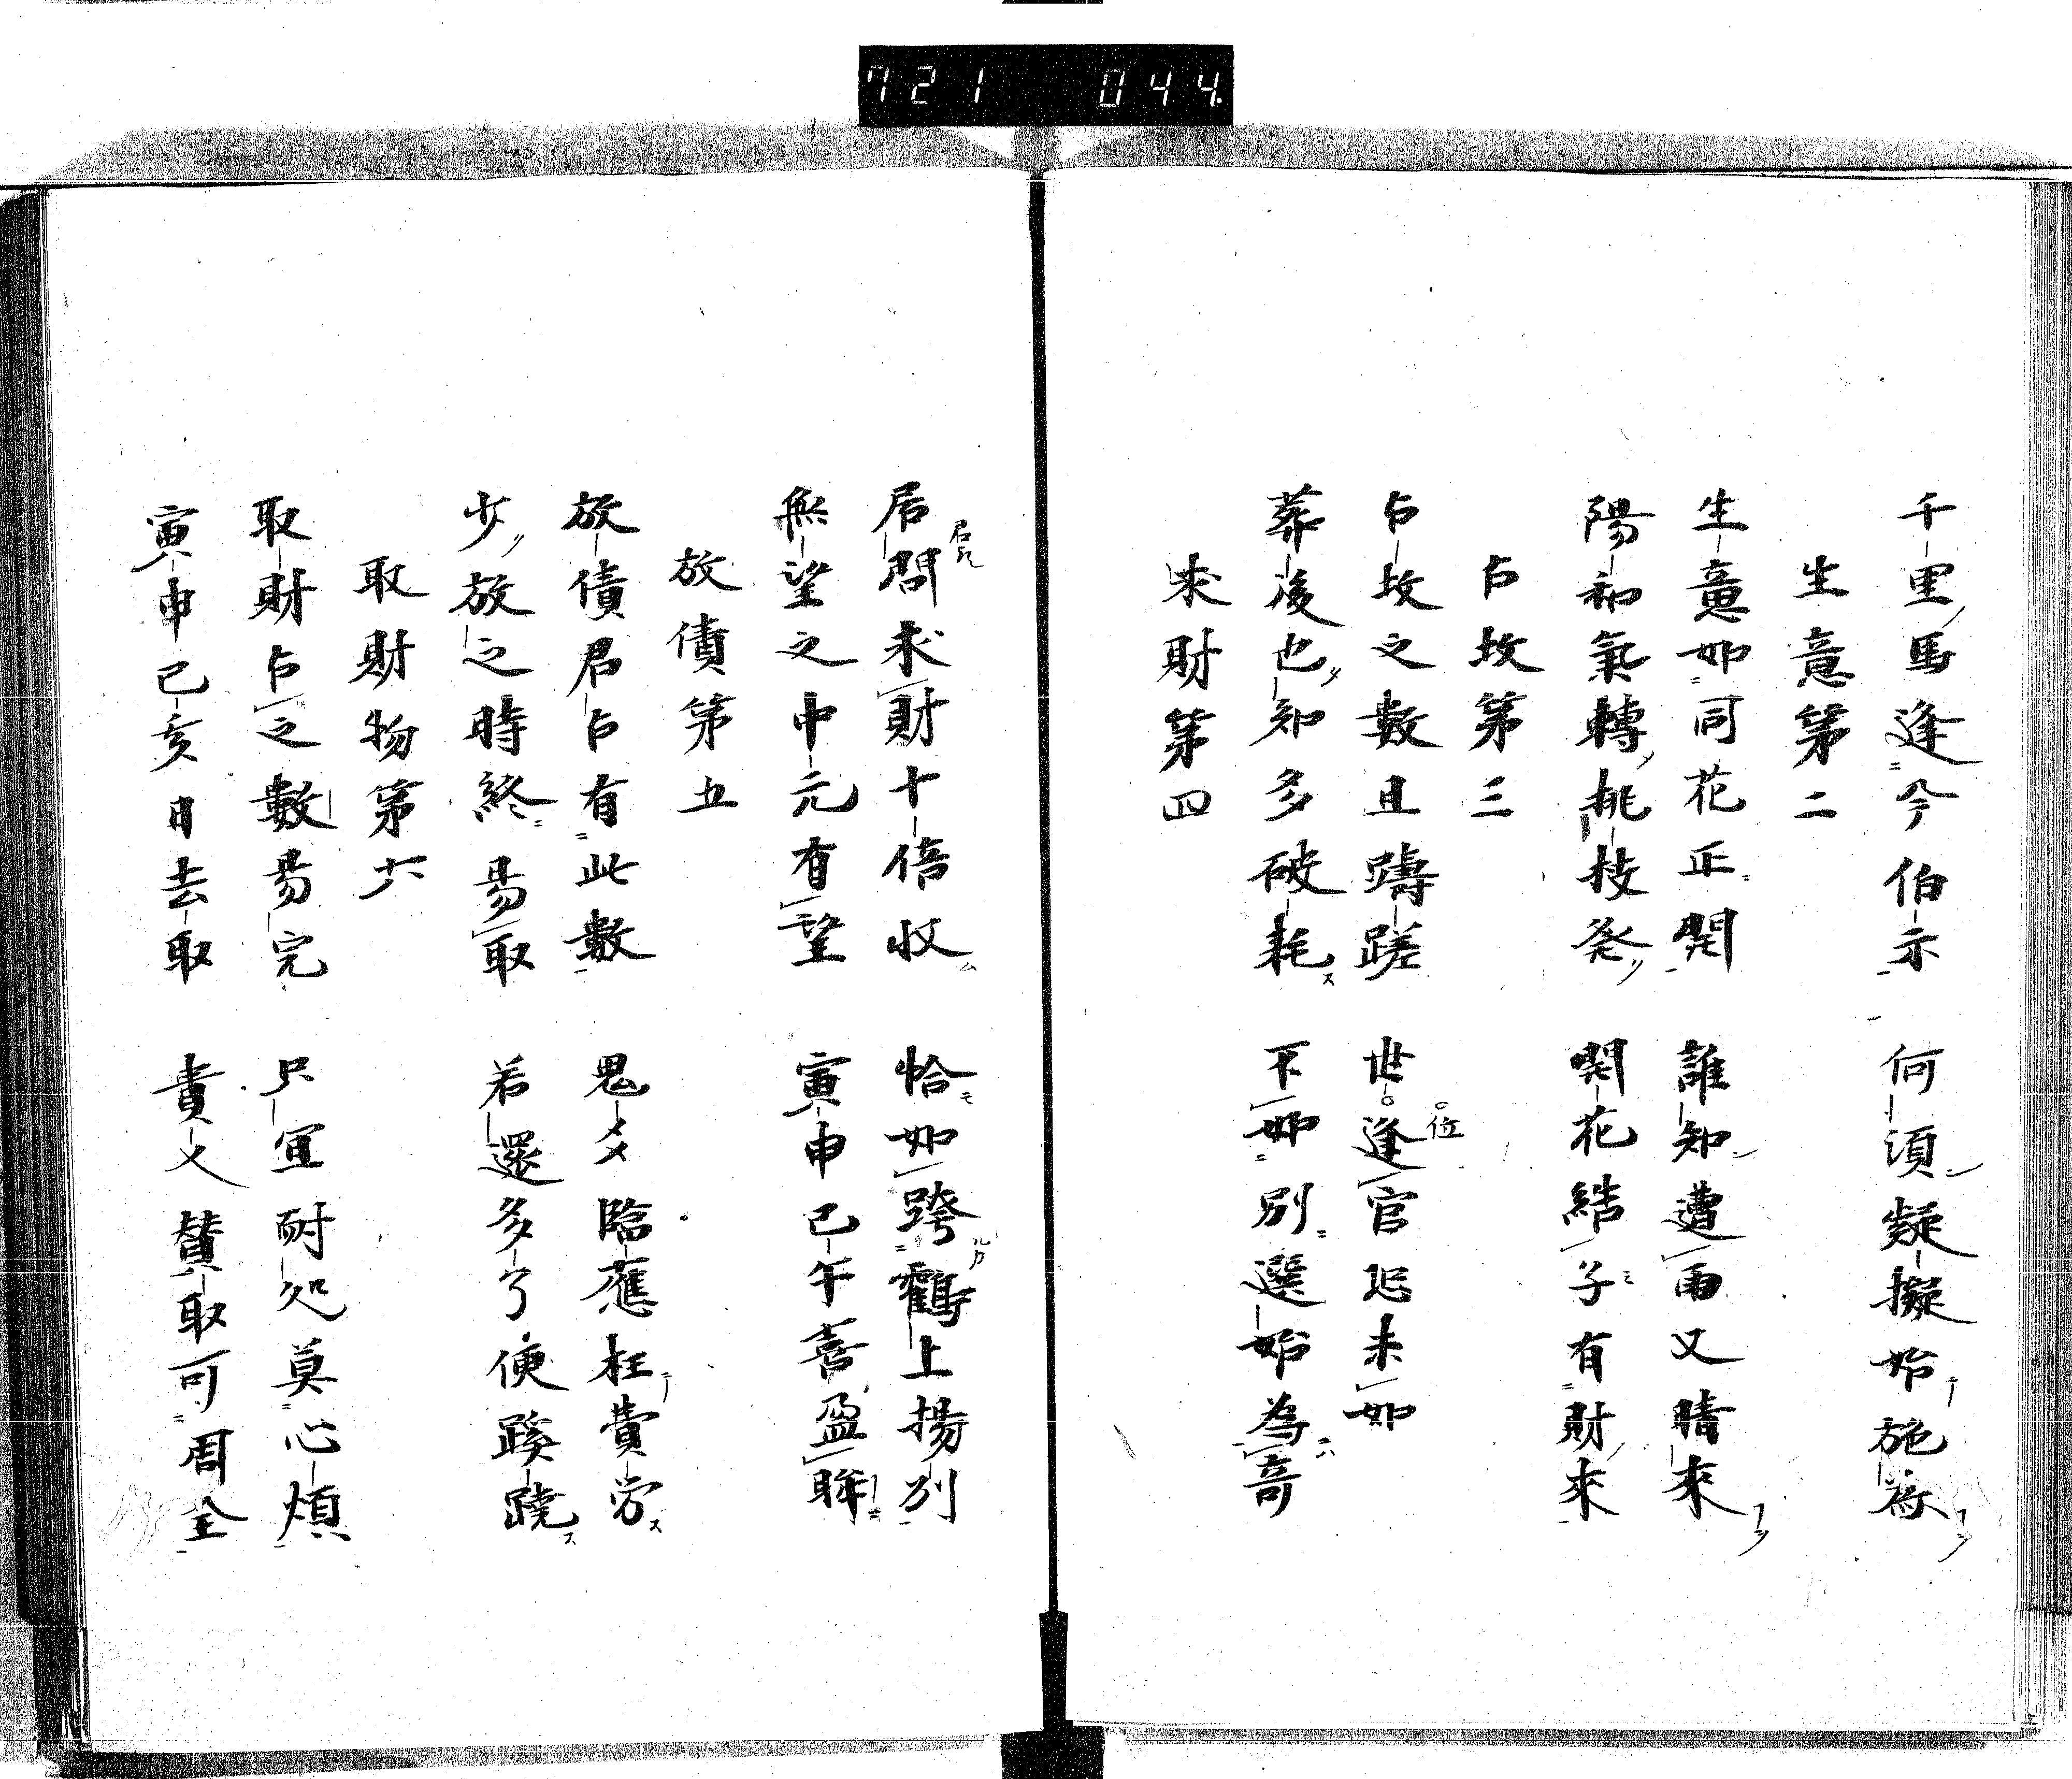 721 044
千里馬逢今伯示 何須疑擬始施為
生意第二
生意如同花正開 誰知遭雨又晴來
陽和氣轉挑枝発 開花結子有財來
占坟第三
占坟之數且躊蹉 世逢官忌未如
位
葬後也知多破耗 不如別選始為奇
求財第四
居問求財十倍收 恰如跨鶴上揚列
無望之中元有望 寅申巳午喜盈眸
放債第五
放債君占有此數 鬼爻臨應枉費労
少放之時終易取 若還多了便蹊蹺
取財物第六
取財占之數易完 只宜耐処莫心煩
寅申己亥日去取 責人賛取可周全